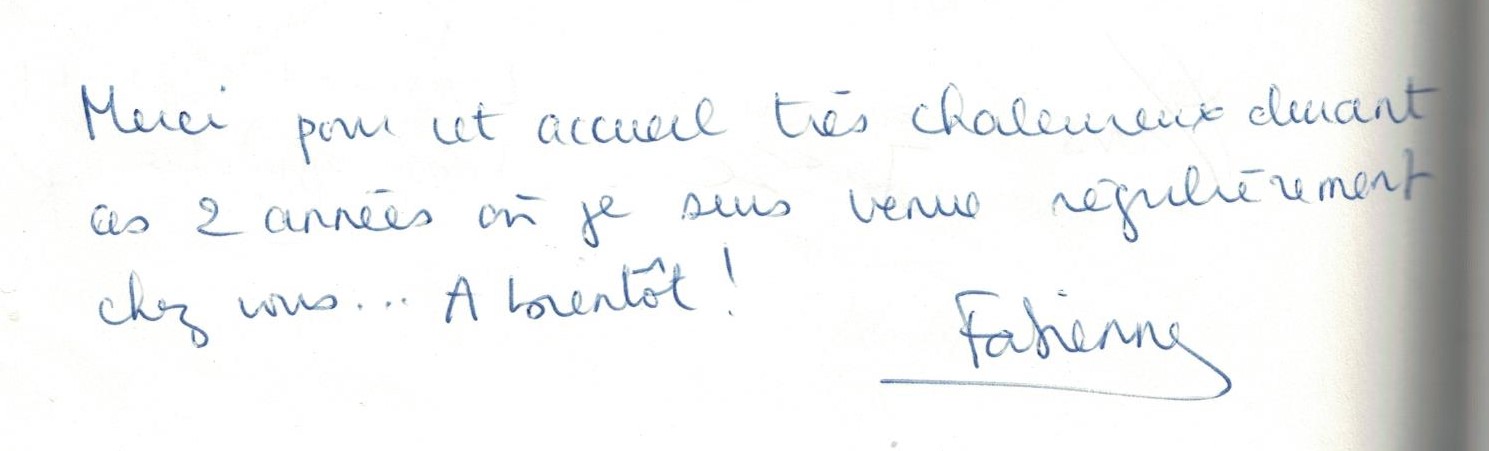 Merci pour cet accueil très chaleureux durant
ces 2 années où je suis venue régulièrement
chez vous... A bientôt !
Fabienne